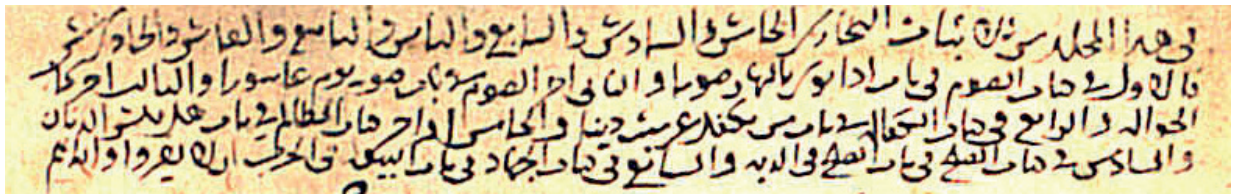 في هذا المجلد من ثلاثيات البخاري الخامس والسادس والسابع والثامن والتاسع والعاشر والحادي عشر
فالاول في كتاب الصوم في باب اذا نوى بالنهار صوما والثاني اخر الصوم في باب صوم يوم عاشورا والثالث اخر كتاب
الحواله والرابع في كتاب الكفاله في باب من تكفل عن ميت دينا والخامس اواخر كتاب المظالم في باب هل تكسر الدنان
والسادس في كتاب الصلح في باب الصلح في الديه والسابع في كتاب الجهاد في باب البيعه في الحرب ان لا يفروا